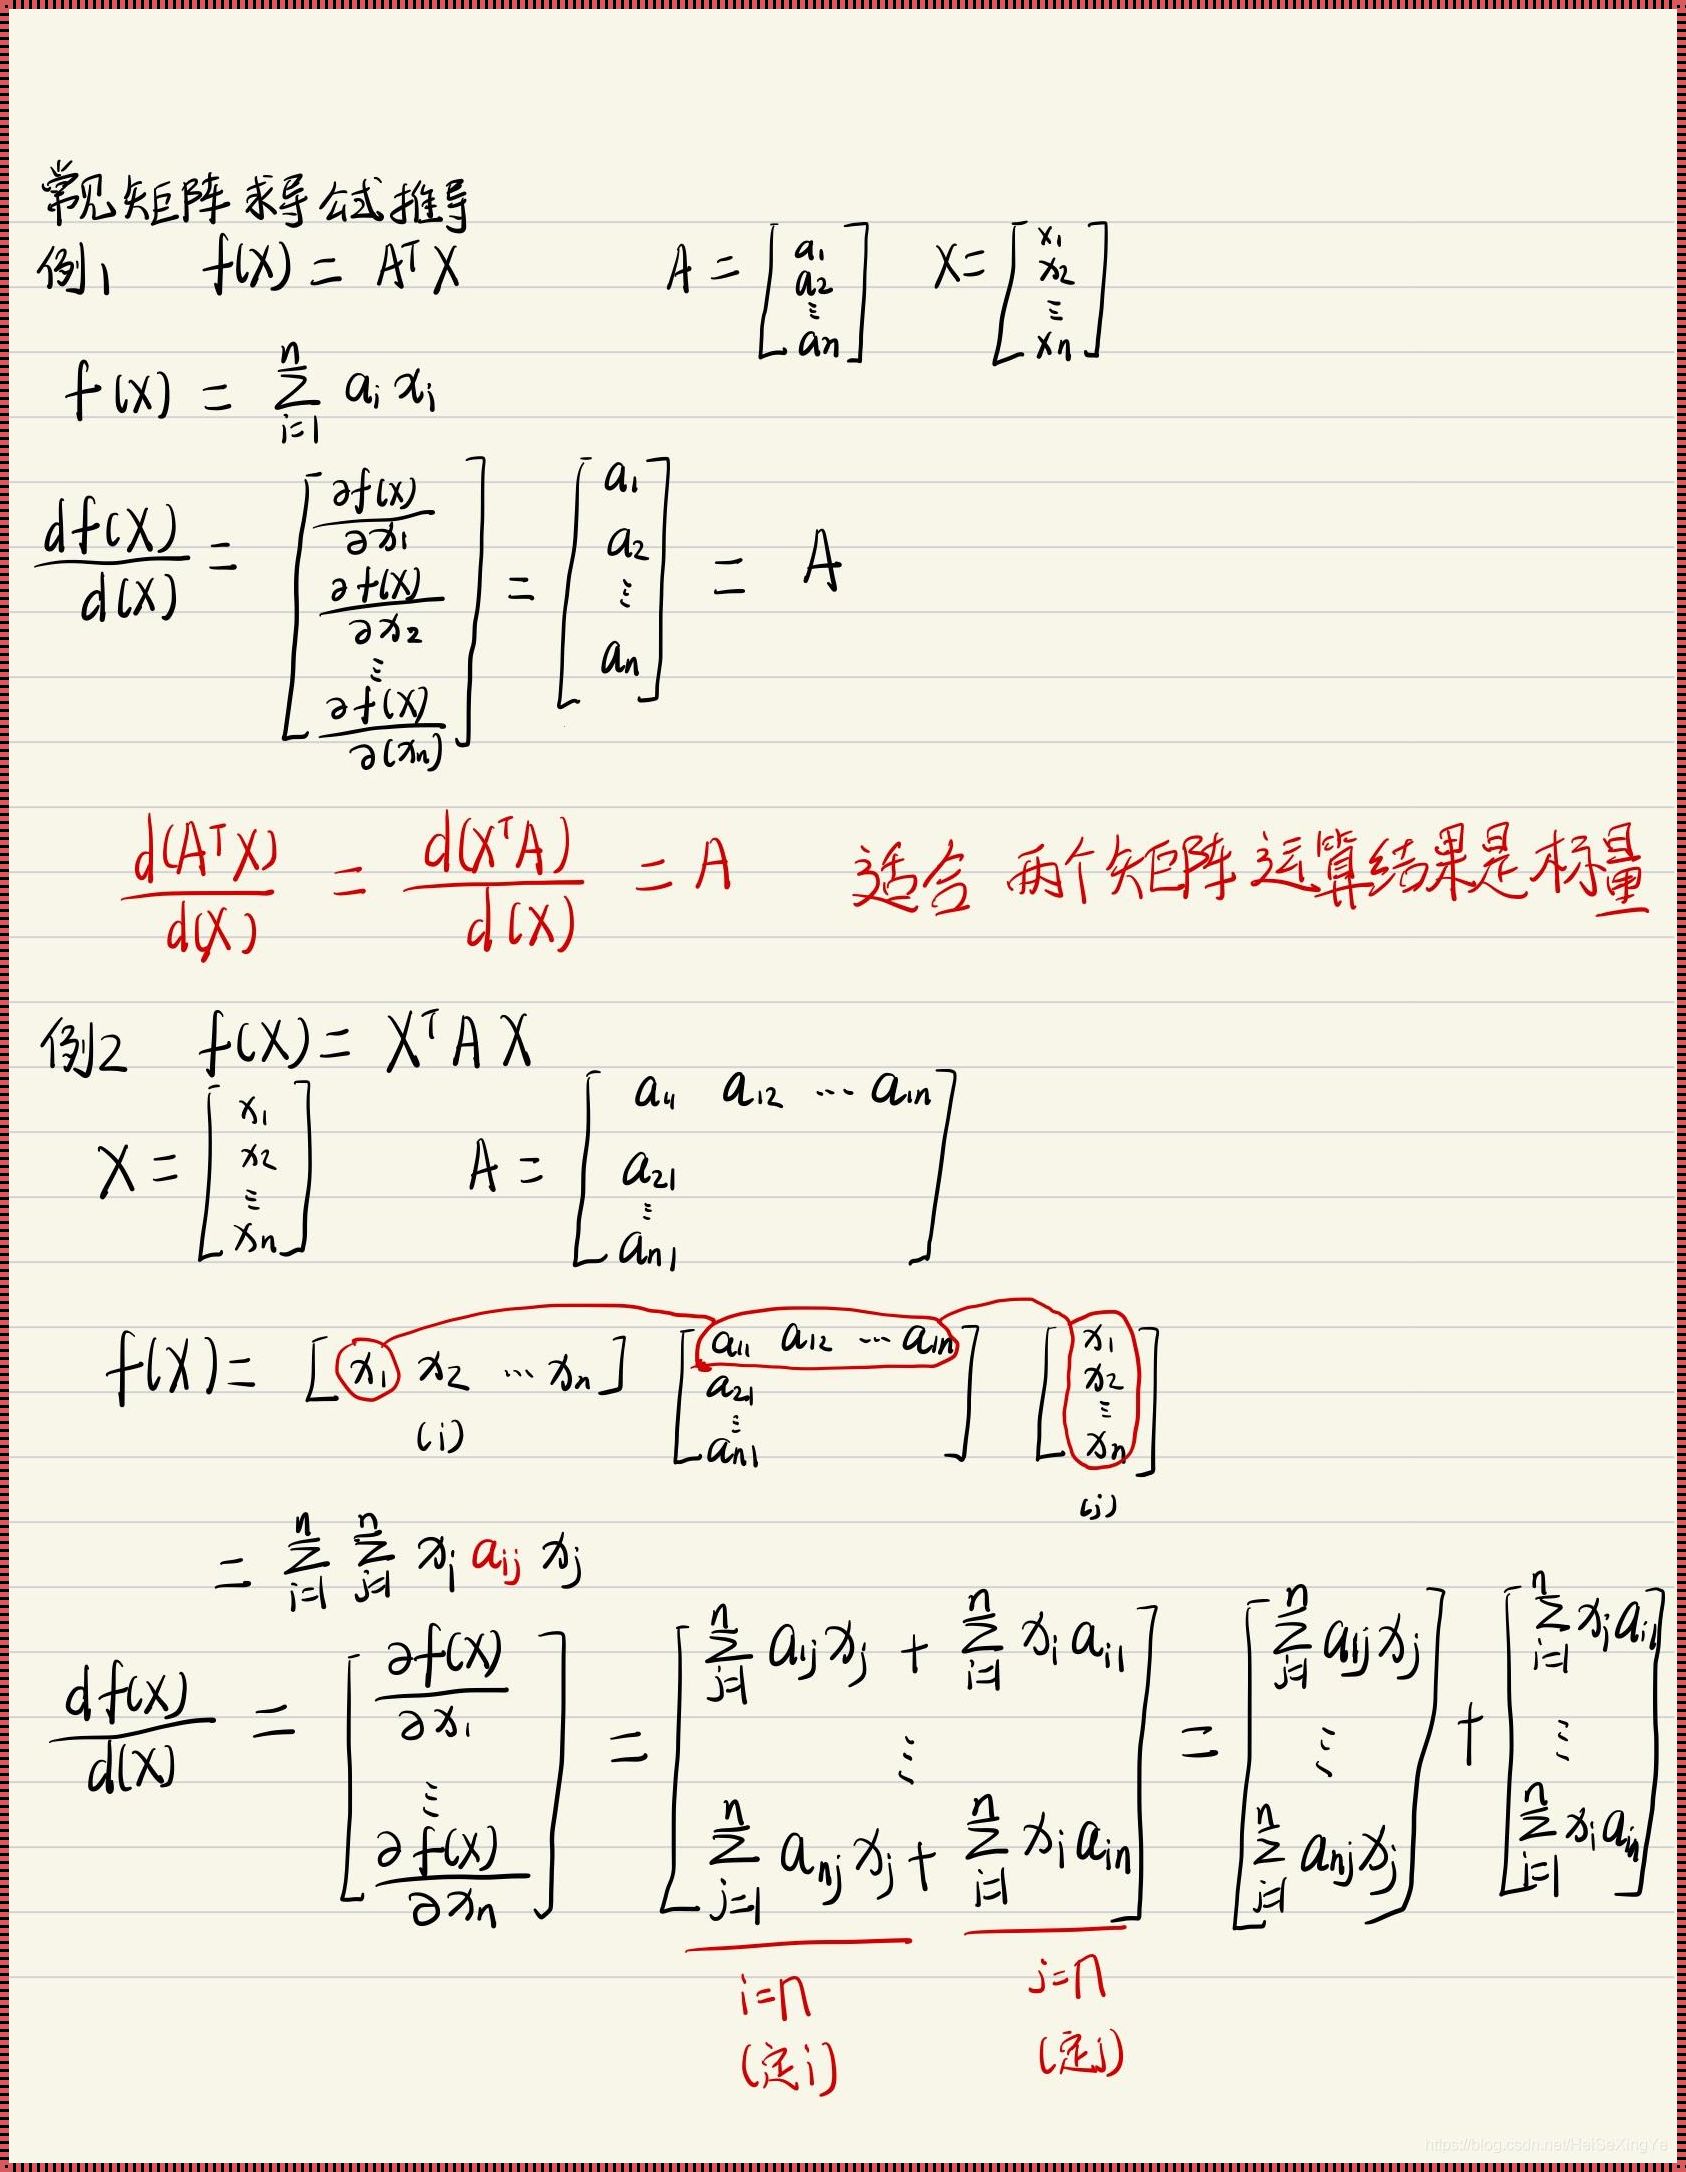 常见矩阵求导公式推导
例1 f(X) = AᵀX A = [a₁ a₂ ⋮ aₙ] X = [x₁ x₂ ⋮ xₙ]
f(X) = ∑ⁿᵢ₌₁ aᵢ xᵢ
df(X)/d(X) = [∂f(X)/∂x₁ ∂f(X)/∂x₂ ⋮ ∂f(X)/∂(xₙ)] = [a₁ a₂ ⋮ aₙ] = A
d(AᵀX)/d(X) = d(XᵀA)/d(X) = A 适合 两个矩阵运算结果是标量
例2 f(X) = XᵀAX
X = [x₁ x₂ ⋮ xₙ] A = [a₁₁ a₁₂ ⋯ a₁ₙ a₂₁ ⋮ aₙ₁]
f(X) = [x₁ x₂ ⋯ xₙ] [a₁₁ a₁₂ ⋯ a₁ₙ a₂₁ ⋮ aₙ₁] [x₁ x₂ ⋮ xₙ]
(i) (j)
= ∑ⁿᵢ₌₁ ∑ⁿⱼ₌₁ xᵢ aᵢⱼ xⱼ
df(X)/d(X) = [∂f(X)/∂x₁ ⋮ ∂f(X)/∂xₙ] = [∑ⁿⱼ₌₁ a₁ⱼxⱼ + ∑ⁿᵢ₌₁ xᵢaᵢ₁ ⋮ ∑ⁿⱼ₌₁ aₙⱼxⱼ + ∑ⁿᵢ₌₁ xᵢaᵢₙ] = [∑ⁿⱼ₌₁ a₁ⱼxⱼ ⋮ ∑ⁿⱼ₌₁ aₙⱼxⱼ] + [∑ⁿᵢ₌₁ xᵢaᵢ₁ ⋮ ∑ⁿᵢ₌₁ xᵢaᵢₙ]
i=n j=n
(定i) (定j)
https://blog.csdn.net/HeiSeXingYe